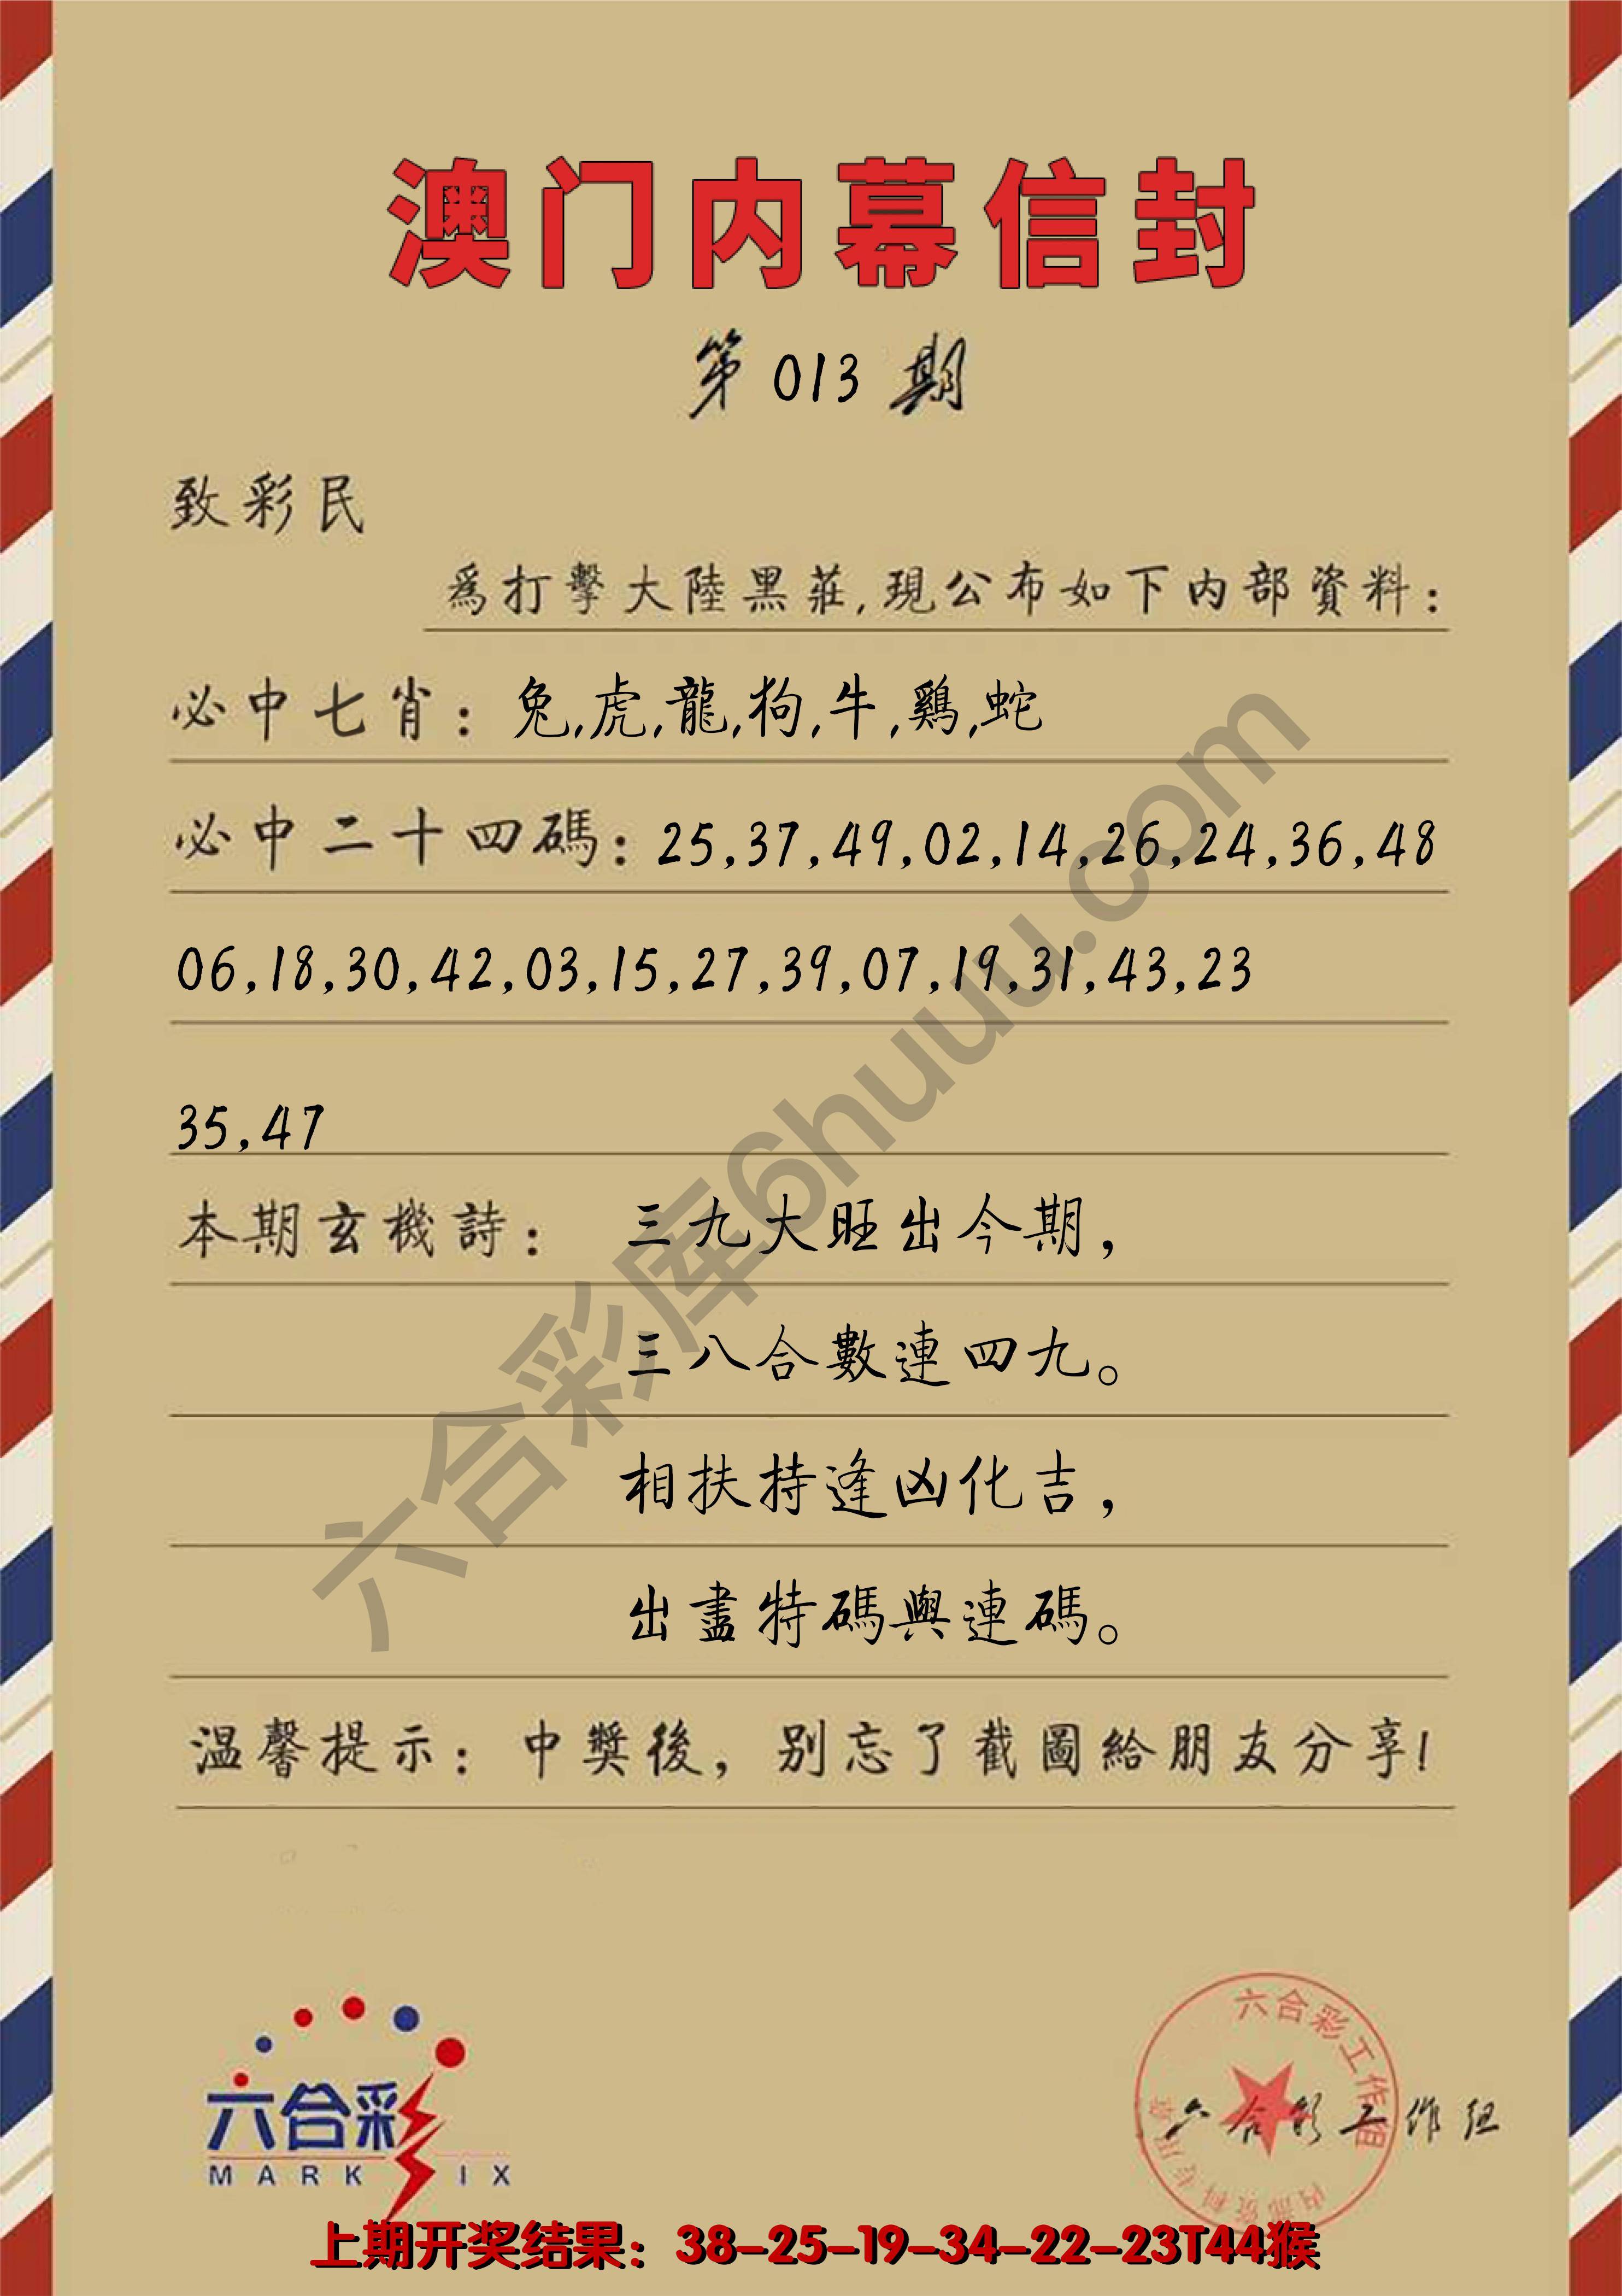 澳门内幕信封
第 013 期
致彩民
爲打擊大陸黑莊,現公布如下内部資料:
必中七肖: 兔,虎,龍,狗,牛,鷄,蛇
必中二十四碼: 25,37,49,02,14,26,24,36,48
06,18,30,42,03,15,27,39,07,19,31,43,23
35,47
本期玄機詩: 三九大旺出今期,
三八合數連四九。
相扶持逢凶化吉,
出盡特碼與連碼。
温馨提示: 中獎後, 别忘了截圖給朋友分享!
六合彩库6huuu.com
六合彩
MARK IX
六合彩工作组
六合彩工作组
上期开奖结果: 38-25-19-34-22-23T44猴